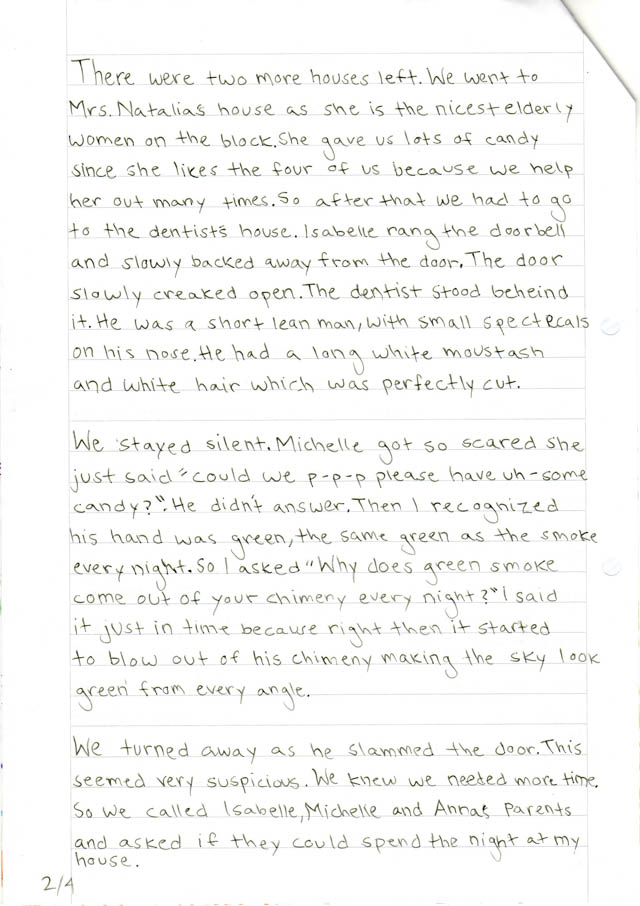 There were two more houses left. We went to
Mrs. Natalia's house as she is the nicest elderly
women on the block. She gave us lots of candy
since she likes the four of us because we help
her out many times. So after that we had to go
to the dentist's house. Isabelle rang the doorbell
and slowly backed away from the door. The door
slowly creaked open. The dentist stood beheind
it. He was a short lean man, with small spectecals
on his nose. He had a long white moustash
and white hair which was perfectly cut.
We stayed silent. Michelle got so scared she
just said "could we p-p-p please have uh-some
candy?". He didn't answer. Then I recognized
his hand was green, the same green as the smoke
every night. So I asked "Why does green smoke
come out of your chimery every night?" I said
it just in time because right then it started
to blow out of his chimeny making the sky look
green from every angle.
We turned away as he slammed the door. This
seemed very suspicious. We knew we needed more time.
So we called Isabelle, Michelle and Annas parents
and asked if they could spend the night at my
house.
2/4